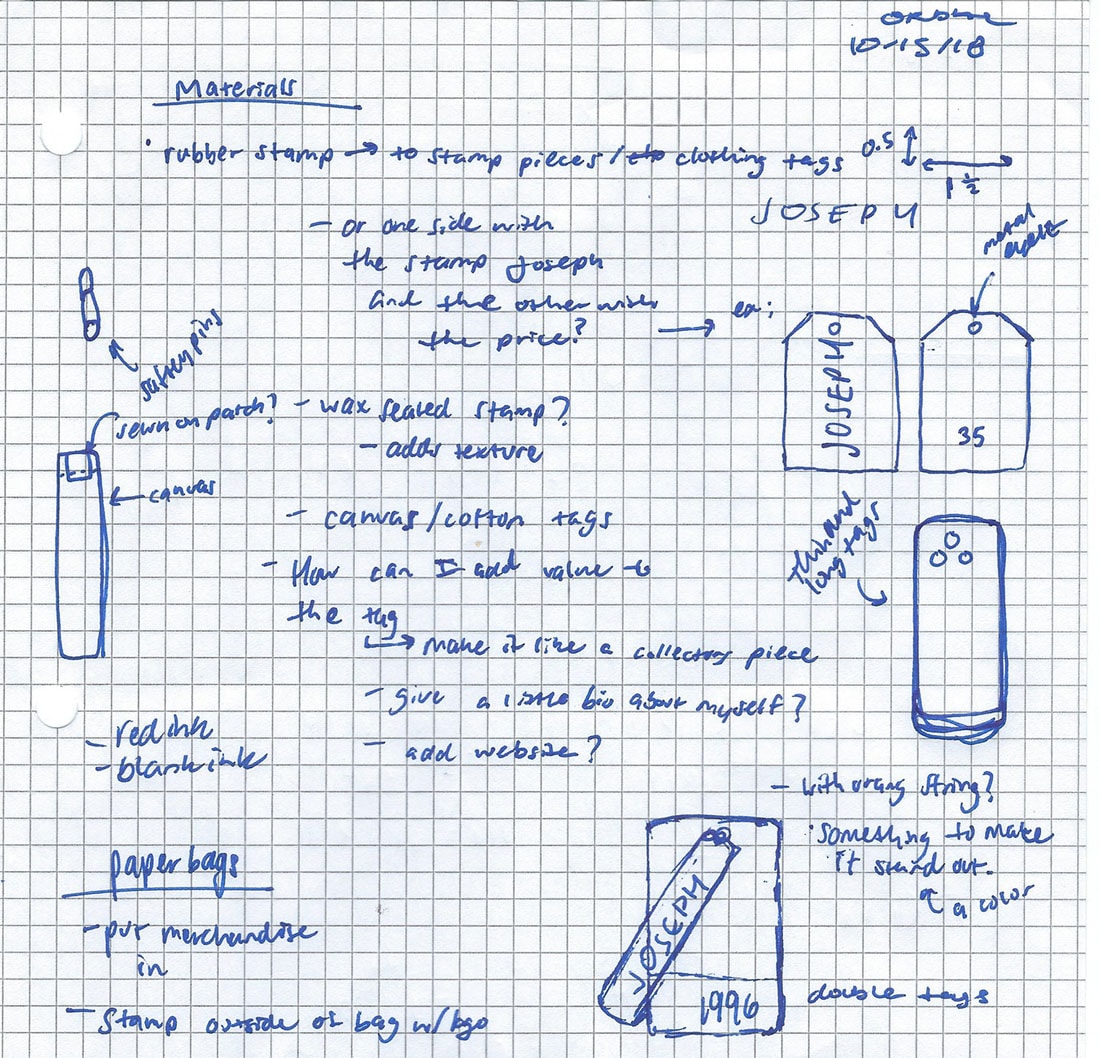 10-15/18
Materials
· rubber stamp → to stamp pieces / clothing tags
0.5
1 1/2
JOSEPH
- or one side with
the stamp Joseph
and the other with
the price? → ex:
metal
JOSEPH
35
saftey pins
sewn on patch?
← canvas
- wax sealed stamp?
- adds texture
- canvas/cotton tags
- How can I add value to
the tag
↳ make it like a collectors piece
- give a little bio about myself?
- add website?
thin and
long tags
- red ink
- blank ink
- with orang string?
·something to make
it stand out.
a color
paper bags
- put merchandise
in
- Stamp outside of bag w/ logo
JOSEPH
1996
double tags